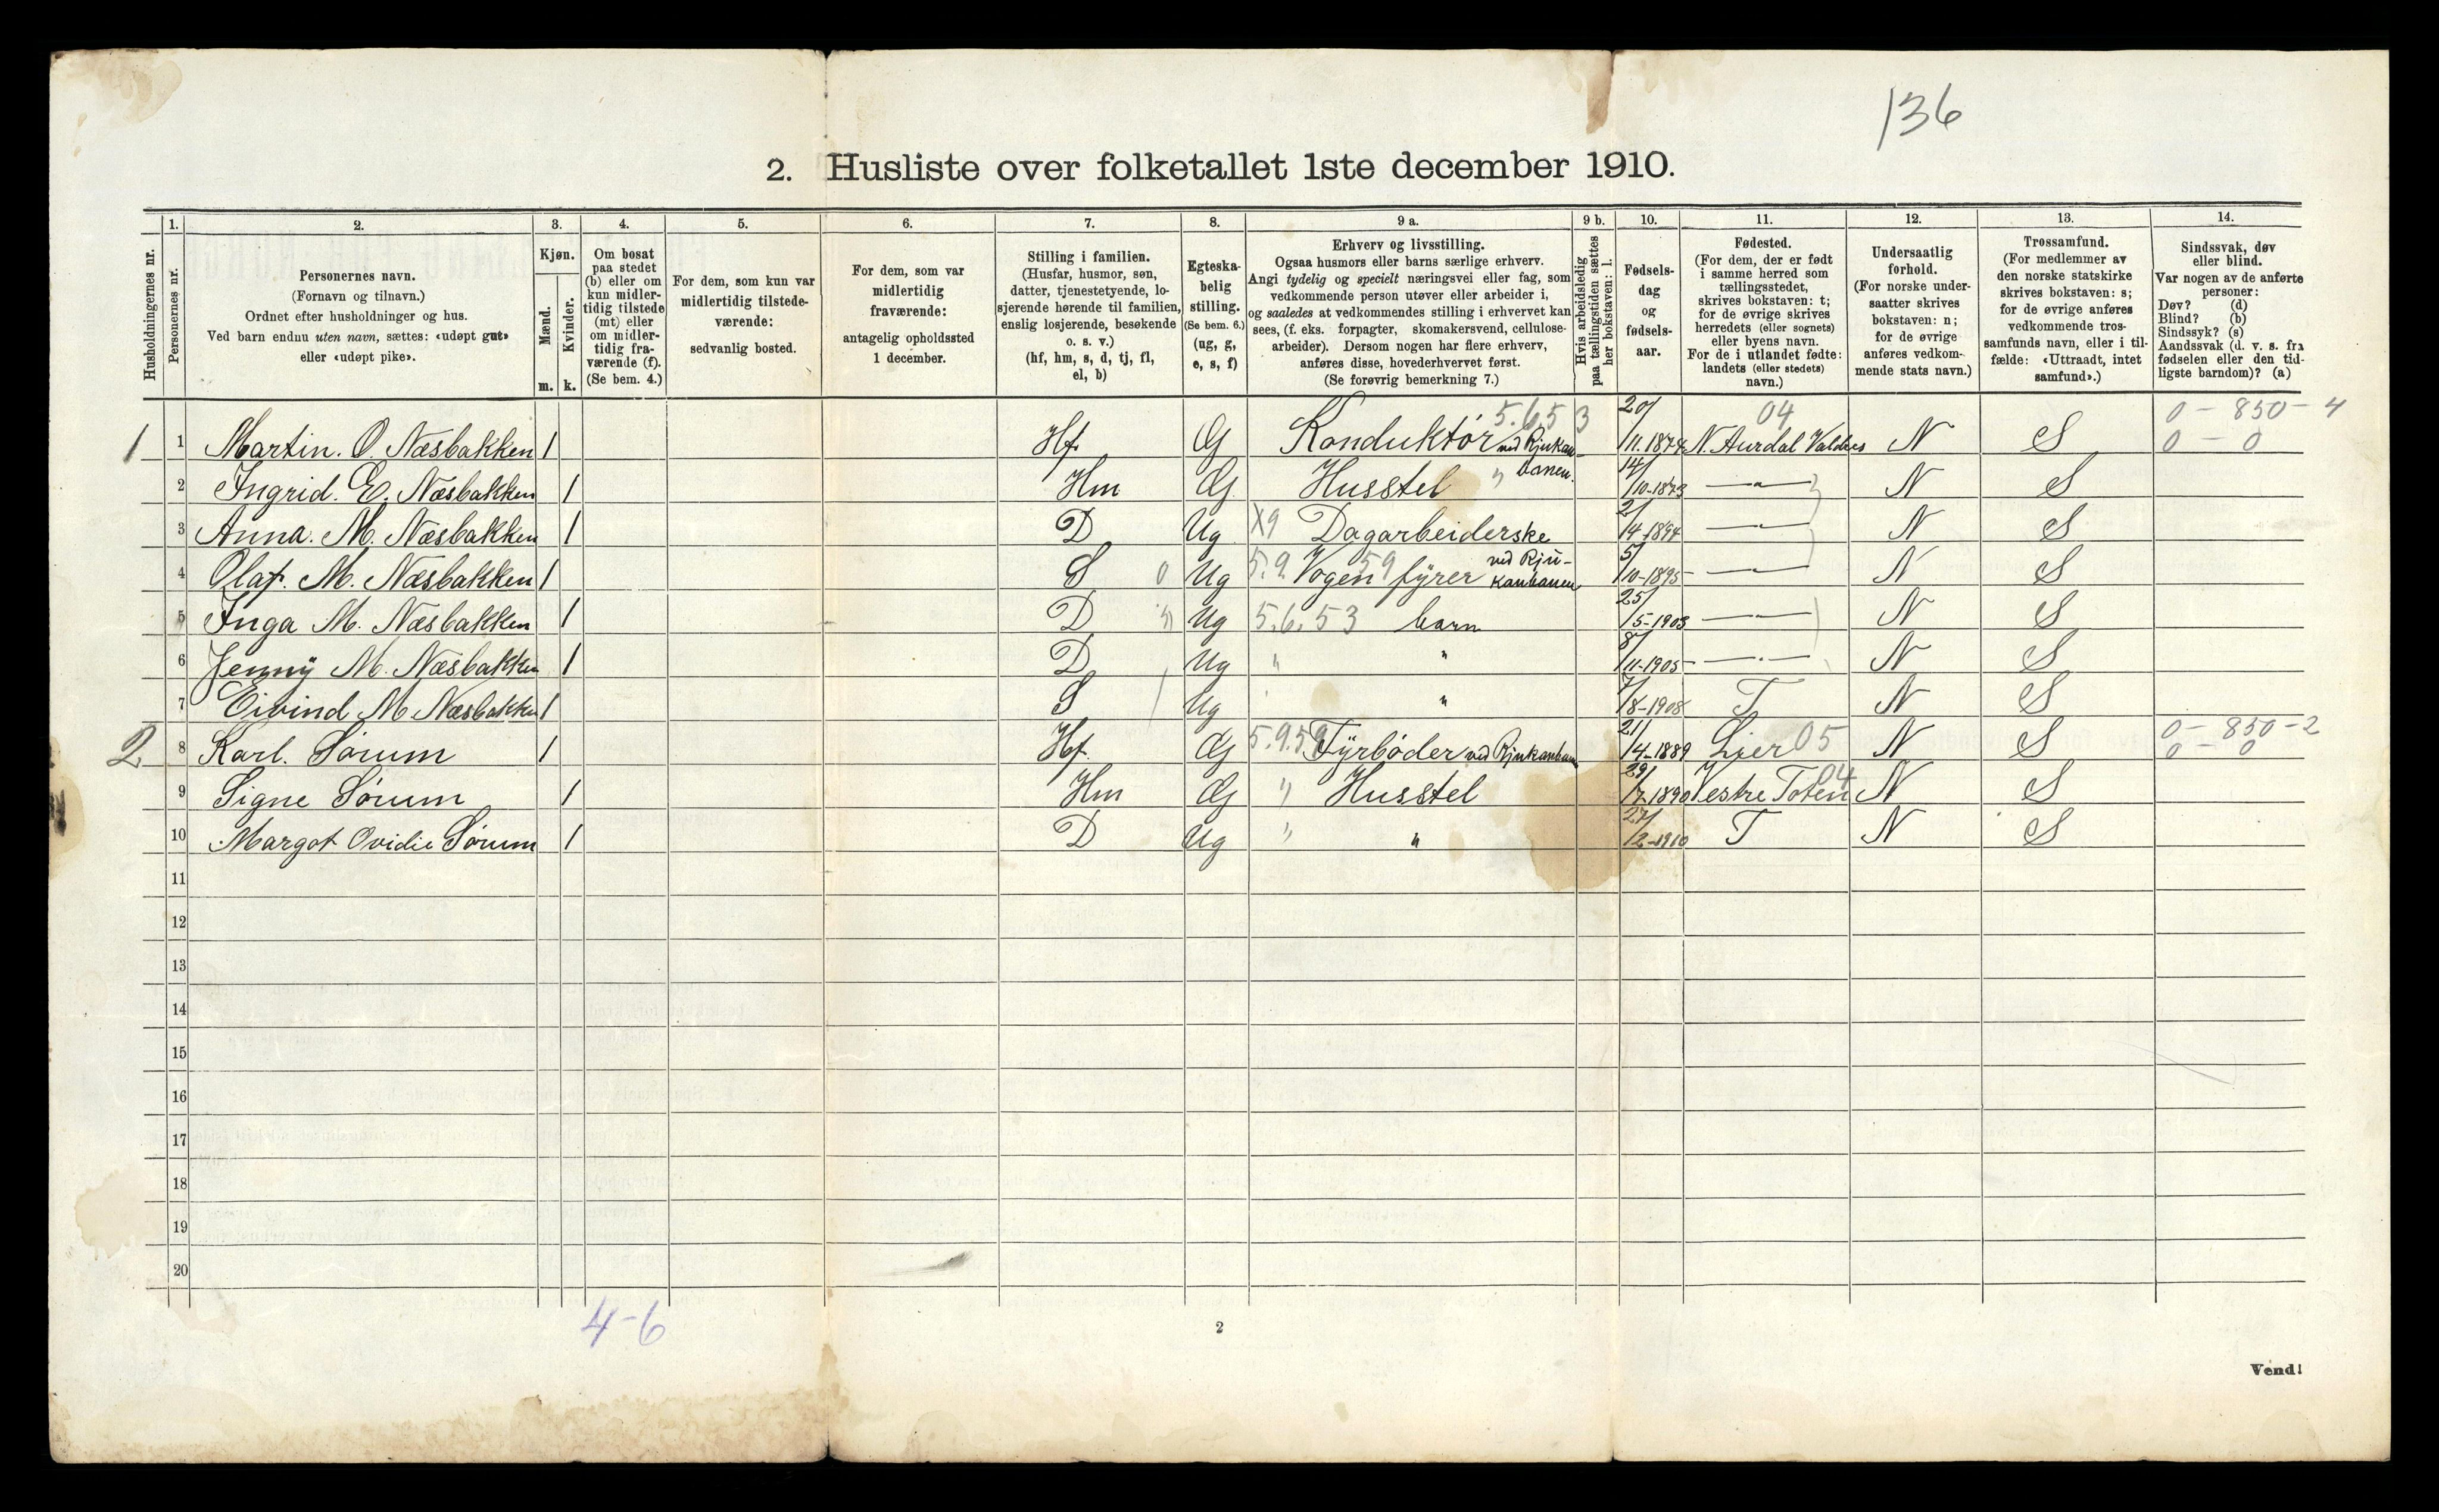 136
2. Husliste over folketallet 1ste december 1910.
Husholdningernes nr.
1.
Personernes nr.
2.
Personernes navn.
(Fornavn og tilnavn.)
Ordnet efter husholdninger og hus.
Ved barn endnu uten navn, sættes: «udøpt gut»
eller «udøpt pike».
3.
Kjøn.
Mænd.
m.
Kvinder.
k.
4.
Om bosat
paa stedet
(b) eller om
kun midler-
tidig tilstede
(mt) eller
om midler-
tidig fra-
værende (f).
(Se bem. 4.)
5.
For dem, som kun var
midlertidig tilstede-
værende:
sedvanlig bosted.
6.
For dem, som var
midlertidig
fraværende:
antagelig opholdssted
1 december.
7.
Stilling i familien.
(Husfar, husmor, søn,
datter, tjenestetyende, lo-
sjerende hørende til familien,
enslig losjerende, besøkende
o. s. v.)
(hf, hm, s, d, tj, fl,
el, b)
8.
Egteska-
belig
stilling.
(Se bem. 6.)
(ug, g,
e, s, f)
9 a.
Erhverv og livsstilling.
Ogsaa husmors eller barns særlige erhverv.
Angi tydelig og specielt næringsvei eller fag, som
vedkommende person utøver eller arbeider i,
og saaledes at vedkommendes stilling i erhvervet kan
sees, (f. eks. forpagter, skomakersvend, cellulose-
arbeider). Dersom nogen har flere erhverv,
anføres disse, hovederhvervet først.
(Se forøvrig bemerkning 7.)
9 b.
Hvis arbeidsledig
paa tællingstiden sættes
her bokstaven: l.
10.
Fødsels-
dag
og
fødsels-
aar.
11.
Fødested.
(For dem, der er født
i samme herred som
tællingsstedet,
skrives bokstaven: t;
for de øvrige skrives
herredets (eller sognets)
eller byens navn.
For de i utlandet fødte:
landets (eller stedets)
navn.)
12.
Undersaatlig
forhold.
(For norske under-
saatter skrives
bokstaven: n;
for de øvrige
anføres vedkom-
mende stats navn.)
13.
Trossamfund.
(For medlemmer av
den norske statskirke
skrives bokstaven: s;
for de øvrige anføres
vedkommende tros-
samfunds navn, eller i til-
fælde: «Uttraadt, intet
samfund».)
14.
Sindssvak, døv
eller blind.
Var nogen av de anførte
personer:
Døv? (d)
Blind? (b)
Sindssyk? (s)
Aandssvak (d. v. s. fra
fødselen eller den tid-
ligste barndom)? (a)
5.653 04 0 - 850 - 4
1 1 Martin. O. Næsbakken 1 Hf. G Konduktør ved Rjukan- 20/11.1874 N. Aurdal Valdres N S 0 - 0
banen.
2 Ingrid. E. Næsbakken 1 Hm G Husstel " 14/10-1873 —"— N S
3 Anna. M. Næsbakken 1 D Ug X9 Dagarbeiderske 2/4-1894 —"— N S
4 Olaf. M. Næsbakken 1 S 0 Ug 5.9. Vogenfyrer 59 ved Rju-
kanbanen 5/10-1895 —"— N S
5 Inga M. Næsbakken 1 D Ug 5.6.53 barn 25/5-1903 —"— N S
6 Jenny M. Næsbakken 1 D Ug " " 8/11-1905 —"— N S
7 Eivind M Næsbakken 1 S Ug " 7/8-1908 T N S
0 - 850 - 2
2 8 Karl. Sørum 1 Hf. G 5.9.59 Fyrbøder ved Rjukanbanen 21/4-1889 Lier 05 N S 0 - 0
9 Signe Sørum 1 Hm G " Husstel 29/7.1890 Vestre Toten 04 N S
10 Margot Ovidie Sørum 1 D Ug " " 27/2-1910 T N S
11
12
13
14
15
16
17
18
19
20
4-6
2
Vend!